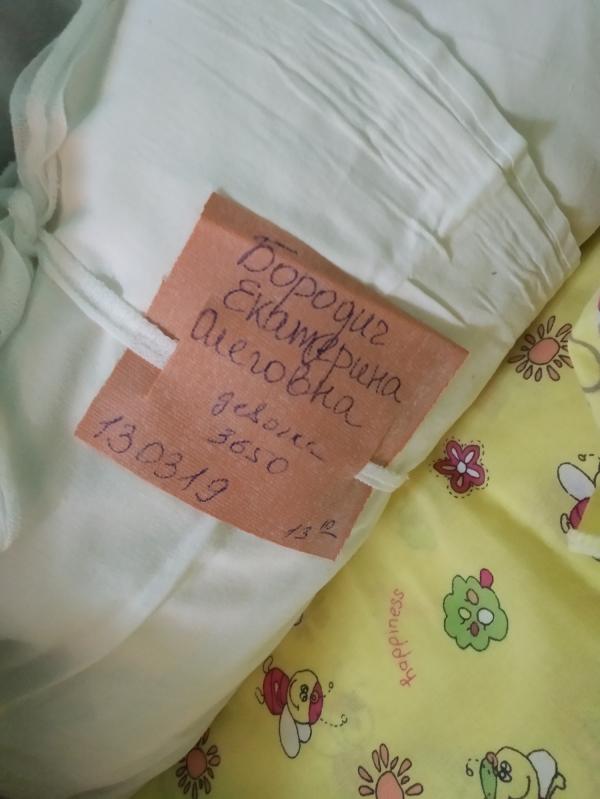 Бородич
Екатерина
Олеговна
девочка
3650
130319
13 10
happiness